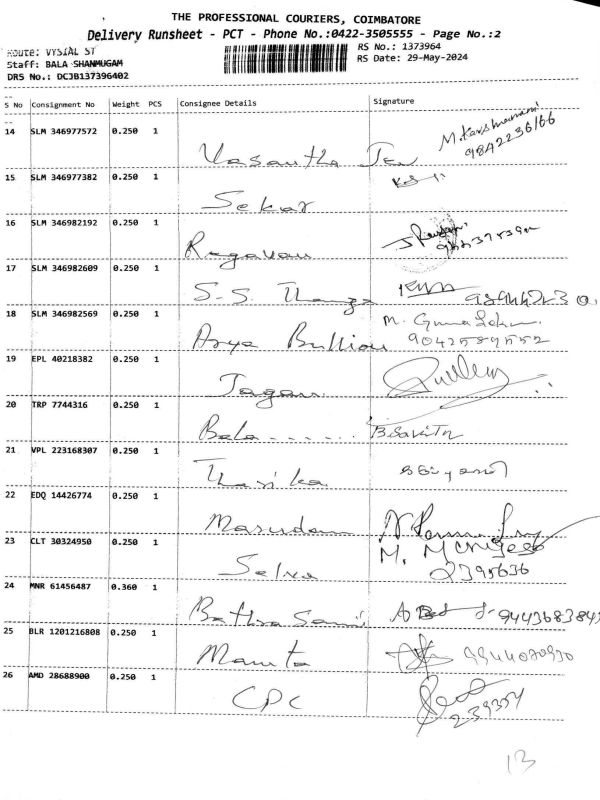 THE PROFESSIONAL COURIERS, COIMBATORE
Delivery Runsheet - PCT - Phone No.:0422-3505555 - Page No.:2
Route: VYSIAL ST
RS No.: 1373964
Staff: BALA SHANMUGAM
RS Date: 29-May-2024
DRS No.: DCJB137396402
S No Consignment No Weight PCS Consignee Details Signature
14 SLM 346977572 0.250 1
Vasantha Jew
9842236166
15 SLM 346977382 0.250 1
Sekar
16 SLM 346982192 0.250 1
Ragavan
17 SLM 346982609 0.250 1
S.S. Thanga
18 SLM 346982569 0.250 1
Arya Bullion
9042589552
19 EPL 40218382 0.250 1
Jagan
20 TRP 7744316 0.250 1
Bala
B.Savith
21 VPL 223168307 0.250 1
Thasika
22 EDQ 14426774 0.250 1
Masudan
23 CLT 30324950 0.250 1
Selva
2395636
24 MNR 61456487 0.360 1
Bathra Sami
9443683843
25 BLR 1201216808 0.250 1
Mamta
9944070930
26 AMD 28688900 0.250 1
CPC
239354
13